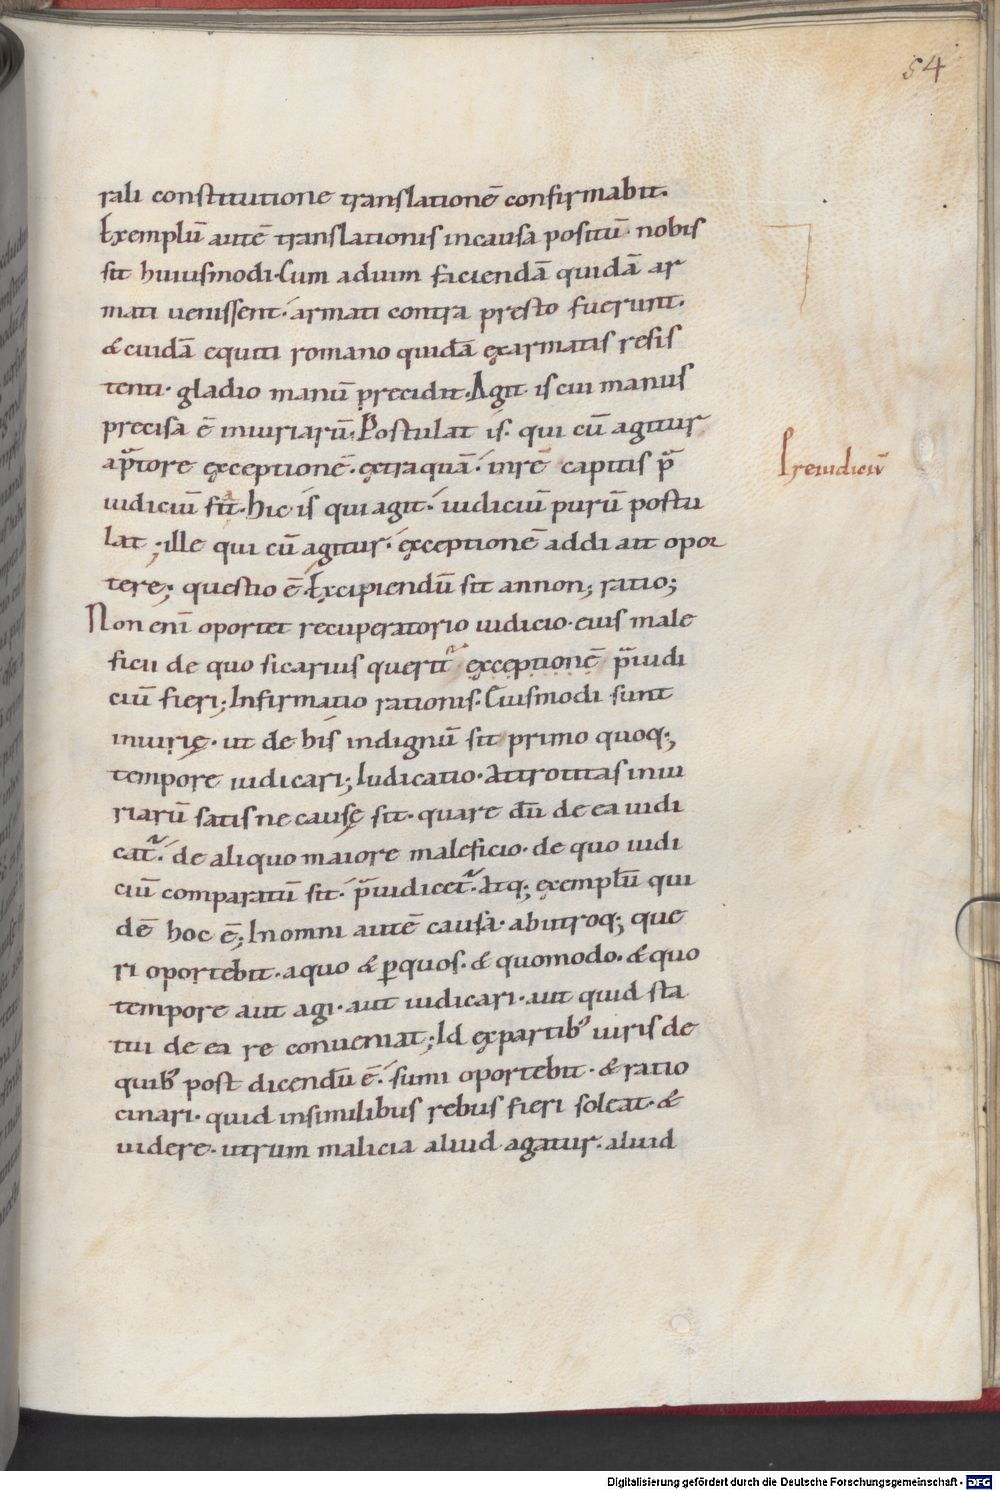 54
rali constitutione translationē confirmabit.
Exemplū autē translationis incausa positū nobis
sit huiusmodi. Cum aduim faciendā quidā ar
mati uenissent. armati contra presto fuerunt.
& cuidā equiti romano quidā exarmatis resis
tenti. gladio manū precidit. Agit is cui manus
precisa ē iniuriarū. Postulat is. qui cū agitur
Preiudiciū
ap̄tore exceptionē. extraquā. inrē capitis p̄
iudiciū fit. hic is qui agit. iudiciū purū postu
lat; ille qui cū agitur. exceptionē addi ait opor
tere; questio ē. Excipiendū sit annon; ratio;
Non enī oportet recuperatorio iudicio. eius male
ficii de quo sicarius querit᷒ exceptionē p̄iudi
ciū fieri; Infirmatio rationis. Eiusmodi sunt
iniurię. ut de his indignū sit primo quoq;
tempore iudicari; Iudicatio. Attrotitas iniu
riarū satis ne causę sit. quare dū de ea iudi
cat᷒. de aliquo maiore maleficio. de quo iudi
ciū comparatū sit. p̄iudicet᷒. Atq; exemplū qui
dē hoc ē; Inomni autē causa. abutroq; que
ri oportebit. aquo & ꝑquos. & quomodo. & quo
tempore aut agi. aut iudicari. aut quid sta
tui de ea re conueniat; Id expartib᷒ iuris de
quib᷒ post dicendū ē. sumi oportebit. & ratio
cinari. quid insimilibus rebus fieri soleat. &
uidere. utrum malicia aliud agatur. aliud
Digitalisierung gefördert durch die Deutsche Forschungsgemeinschaft - DFG